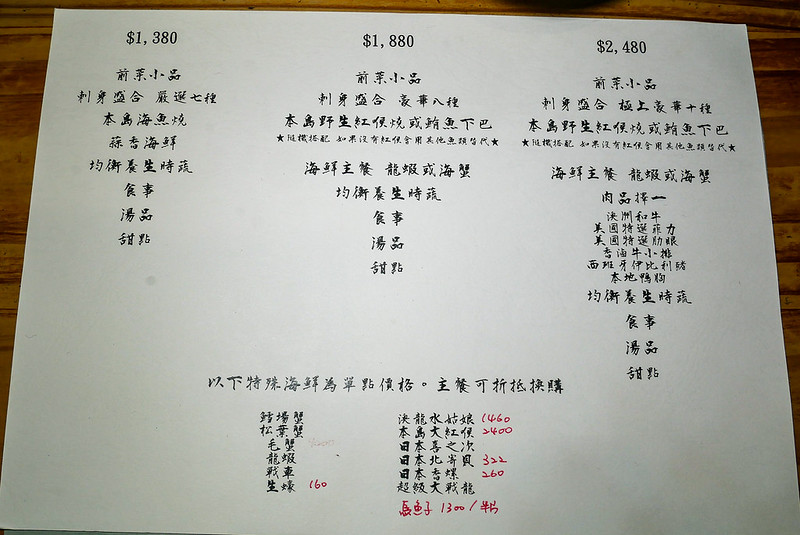 $1,380
前菜小品
刺身盛合 嚴選七種
本島海魚燒
蒜香海鮮
均衡養生時蔬
食事
湯品
甜點
$1,880
前菜小品
刺身盛合 豪華八種
本島野生紅喉燒或鮪魚下巴
★隨機搭配 如果沒有紅喉會用其他魚類替代★
海鮮主餐 龍蝦或海蟹
均衡養生時蔬
食事
湯品
甜點
$2,480
前菜小品
刺身盛合 極上豪華十種
本島野生紅喉燒或鮪魚下巴
★隨機搭配 如果沒有紅喉會用其他魚類替代★
海鮮主餐 龍蝦或海蟹
肉品擇一
澳洲和牛
美國特選菲力
美國特選肋眼
香滷牛小排
西班牙伊比利豬
本地鴨胸
均衡養生時蔬
食事
湯品
甜點
以下特殊海鮮為單點價格。主餐可折抵換購
鱈場蟹
松葉蟹
毛蟹
龍蝦
戰車
生蠔 160
澳龍水姑娘 1460
本島大紅喉 2400
日本喜之次
日本北寄貝 322
日本香螺 260
超級大戰龍
馬魚子 1300/